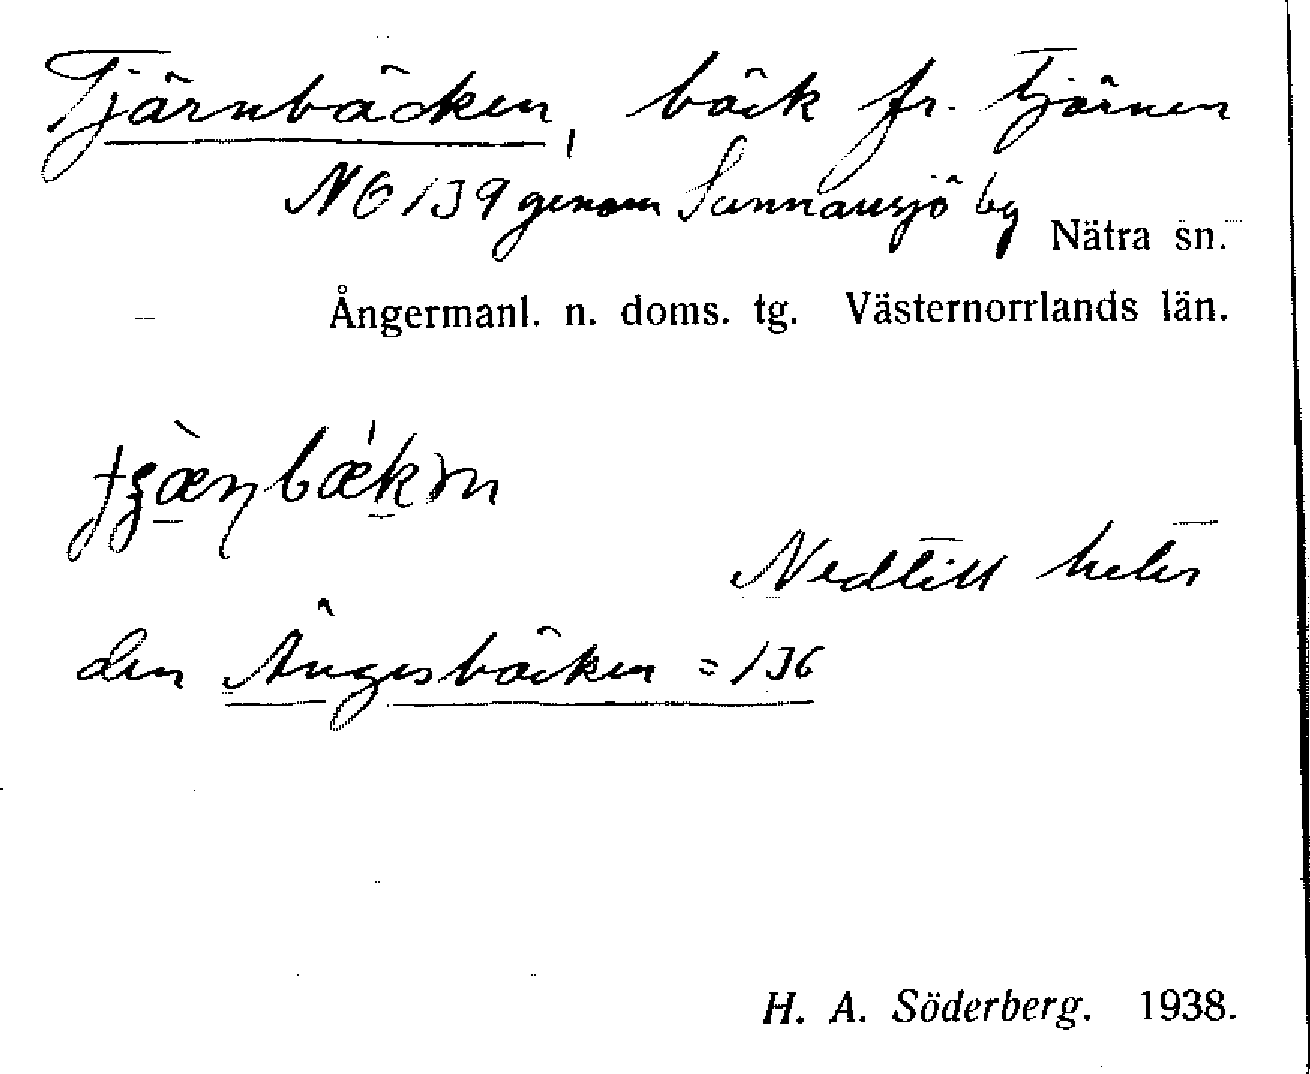 Tjärnbäcken, bäck fr. Tjärnen
NÖ 139 genom Sunnansjö by
Nätra sn.
Ångermanl. n. doms. tg. Västernorrlands län.
Nedtill heter
den Ängesbäcken = 136
H. A. Söderberg. 1938.